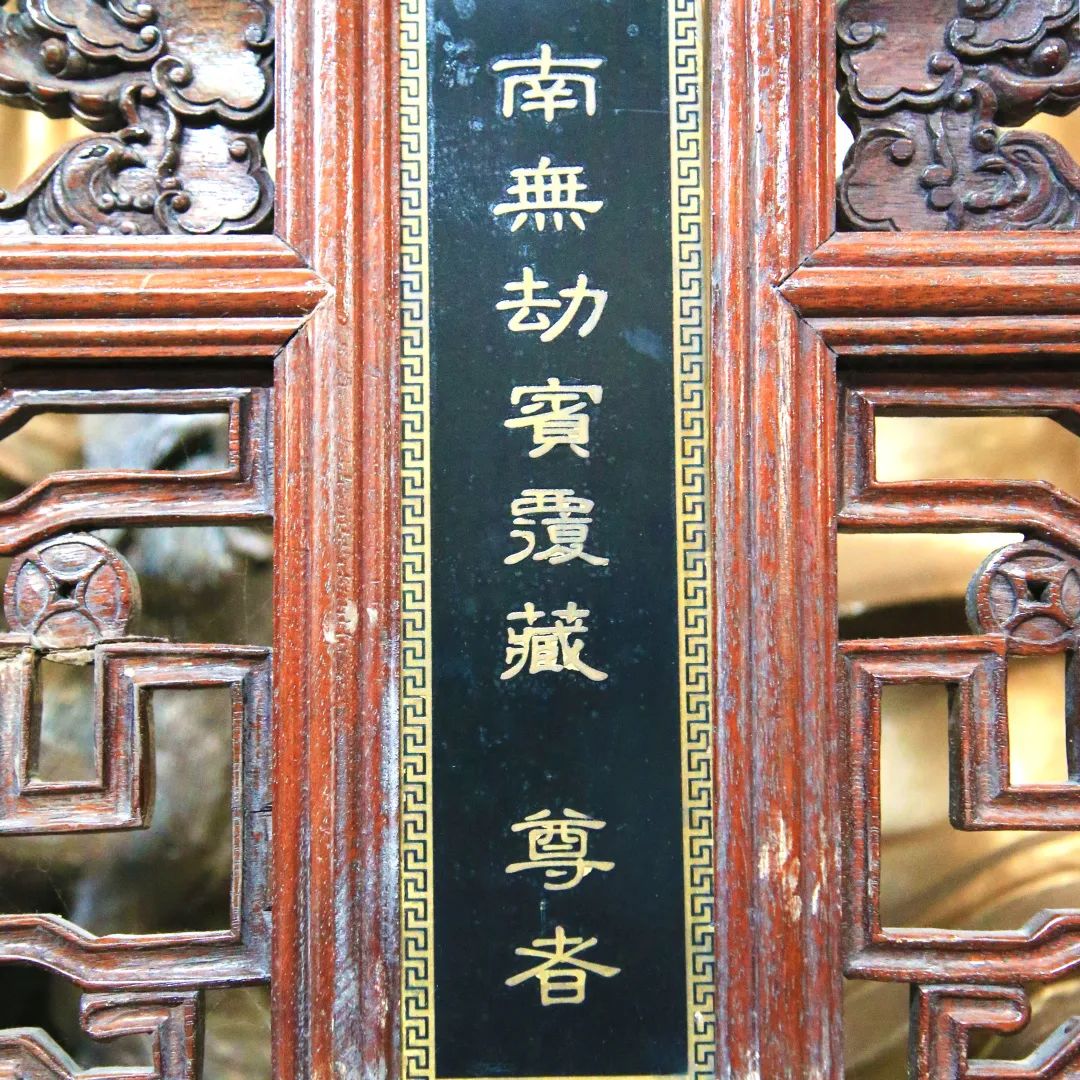 南無劫賓覆藏 尊者